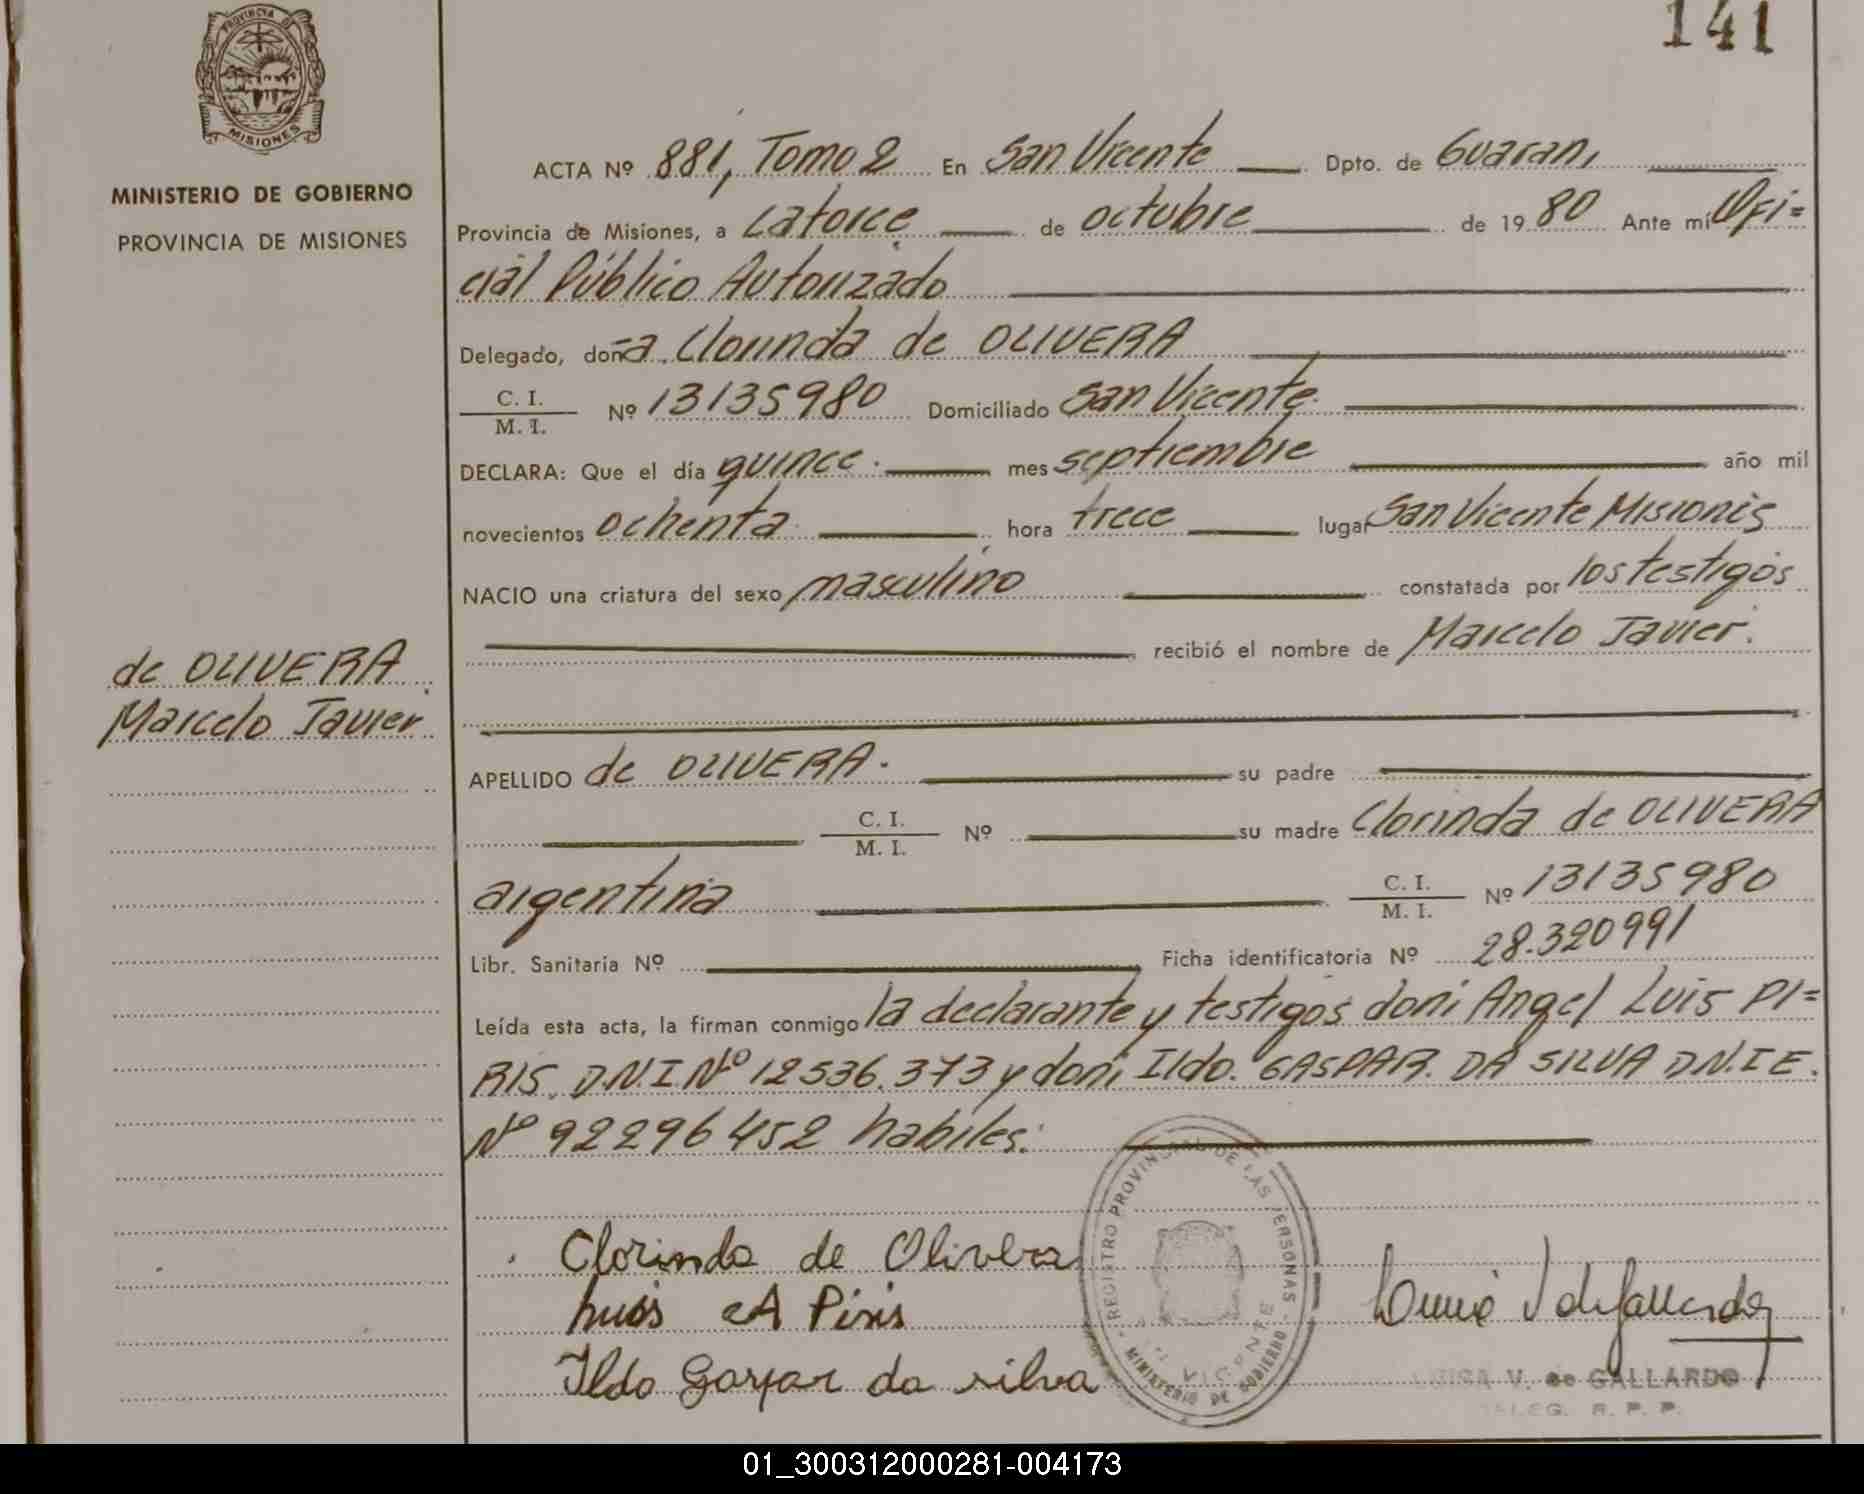 141
PROVINCIA DE
MISIONES
MINISTERIO DE GOBIERNO
PROVINCIA DE MISIONES
ACTA Nº 881, Tomo 2 En San Vicente Dpto. de Guarani
Provincia de Misiones, a catorce de octubre de 1980 Ante mí Ofi=
cial Público Autorizado
Delegado, doña Clorinda de OLIVERA
C. I.
M. I. Nº 13135980 Domiciliado San Vicente
DECLARA: Que el día quince mes septiembre año mil
novecientos ochenta hora trece lugar San Vicente Misiones
NACIO una criatura del sexo masculino constatada por los testigos
recibió el nombre de Marcelo Javier.
de OLIVERA
Marcelo Javier
APELLIDO de OLIVERA. su padre
C. I.
M. I. Nº su madre Clorinda de OLIVERA
argentina C. I.
M. I. Nº 13135980
Libr. Sanitaria Nº Ficha identificatoria Nº 28.320991
Leída esta acta, la firman conmigo la declarante y testigos doni Angel Luis PI=
RIS. D.N.I Nº 12536.373 y doni Ildo. GASPAR. DA SILVA D.N.I E.
Nº 92296452 habiles.
Clorinda de Olivera
Luis A Piris
Ildo Gaspar da silva
REGISTRO PROVINCIAL DE LAS PERSONAS - MINISTERIO DE GOBIERNO -
VICENTE
LUISA V. de GALLARDO
DELEG. R. P. P.
01_300312000281-004173